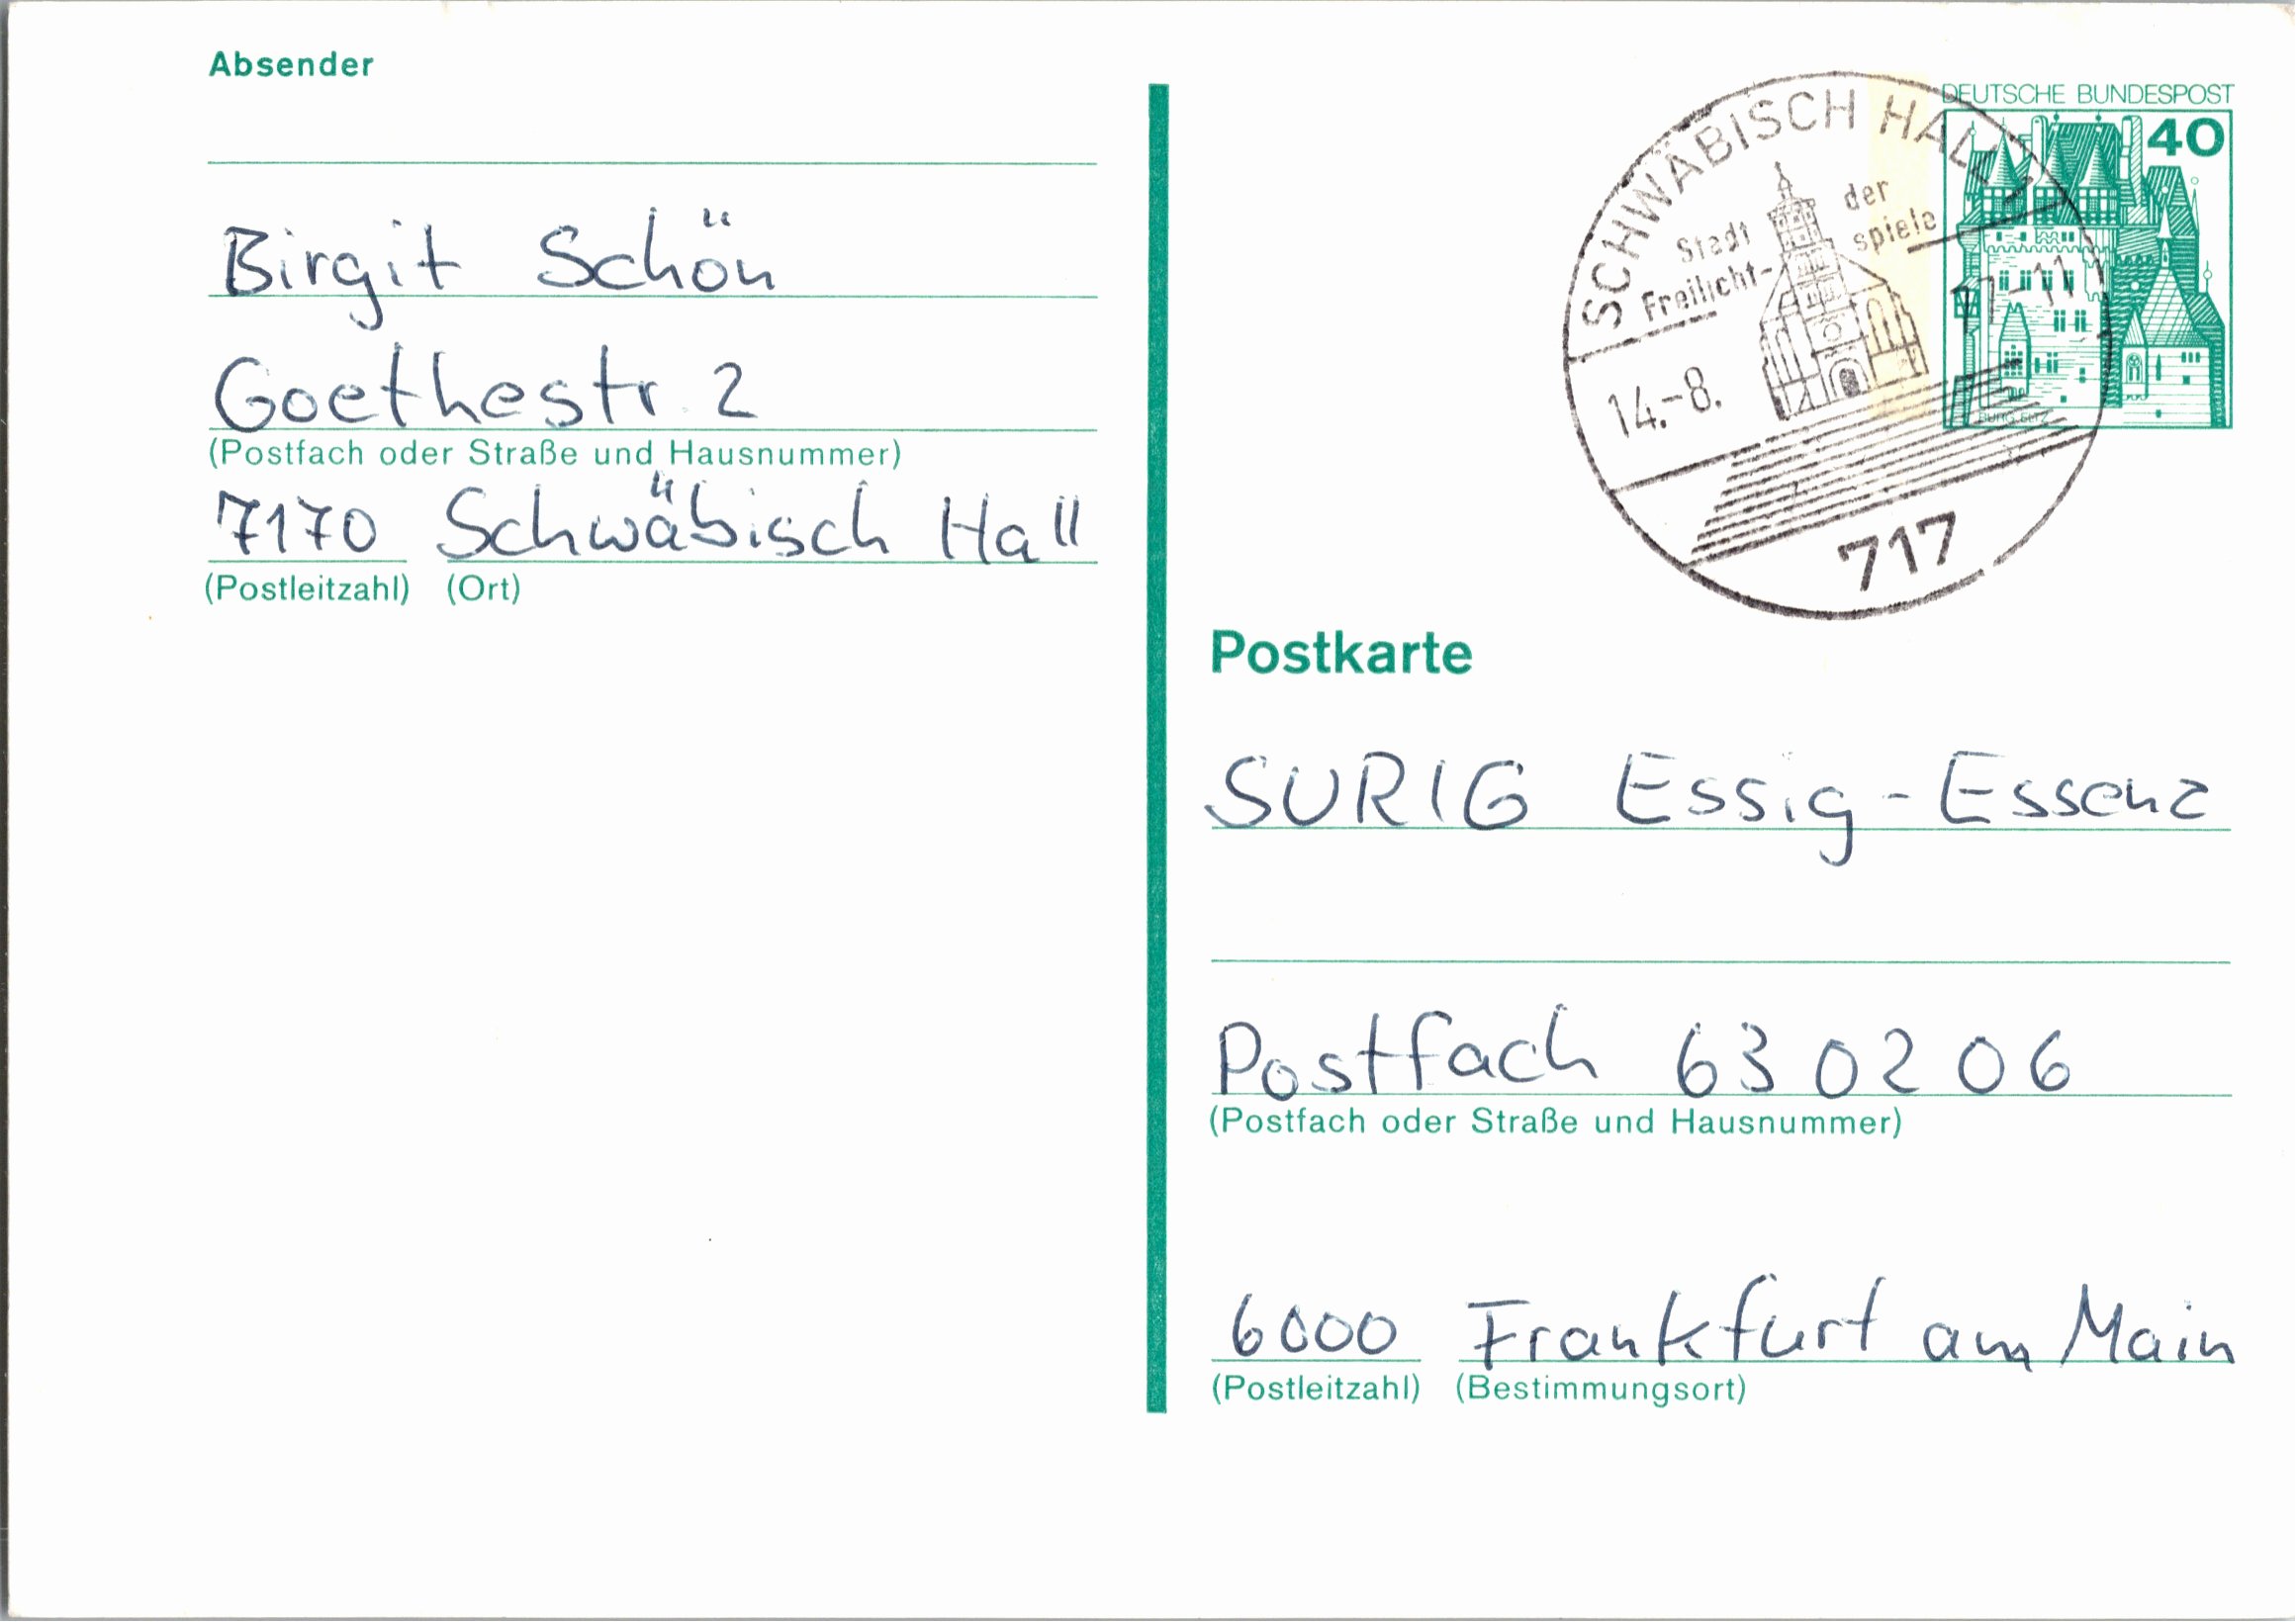 Absender
Birgit Schön
Goethestr. 2
(Postfach oder Straße und Hausnummer)
7170 Schwäbisch Hall
(Postleitzahl) (Ort)
DEUTSCHE BUNDESPOST
40
SCHWÄBISCH HALL
Stadt der
Freilicht- spiele
14.-8. -11
717
Postkarte
SURIG Essig-Essenz
Postfach 63 02 06
(Postfach oder Straße und Hausnummer)
6000 Frankfurt am Main
(Postleitzahl) (Bestimmungsort)